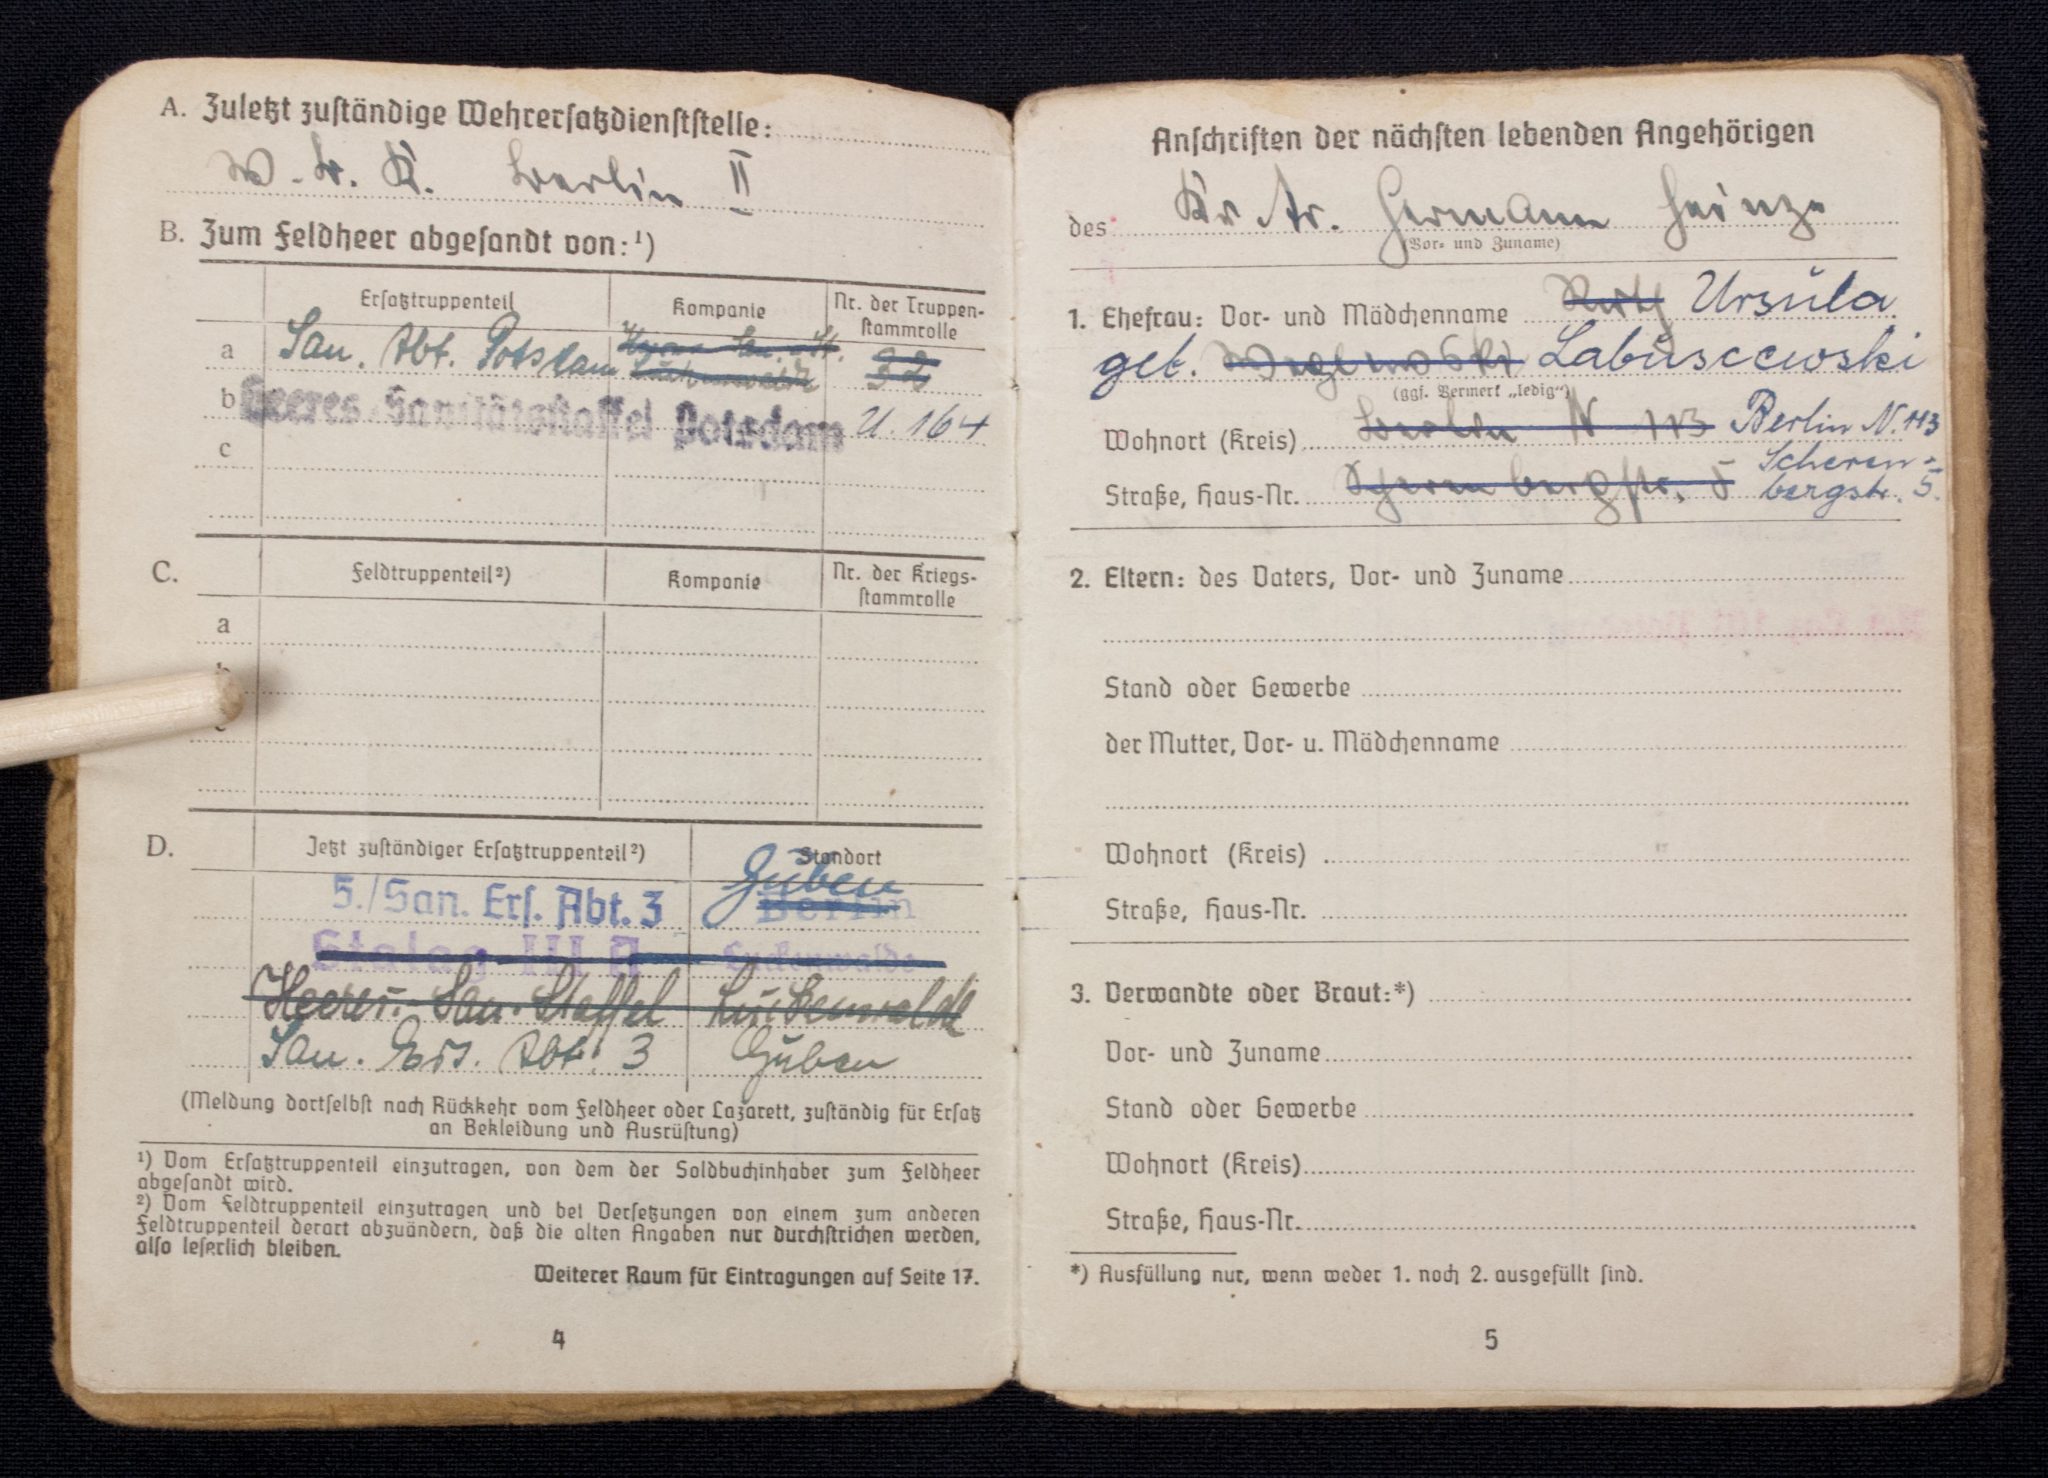 A. Zuletzt zuständige Wehrersatzdienststelle:
W. B. K. Berlin II
B. Zum Feldheer abgesandt von: ¹)
Ersatztruppenteil Kompanie Nr. der Truppen-
stammrolle
a San. Abt. Potsdam 32
b Heeres-Sanitätsstaffel Potsdam U. 164
c
C. Feldtruppenteil ²) Kompanie Nr. der Kriegs-
stammrolle
a
D. Jetzt zuständiger Ersatztruppenteil ²) Standort
5./San. Ers. Abt. 3 Berlin Guben
Stalag III A Luckenwalde
Heeres-San. Staffel Luckenwalde
San. Ers. Abt. 3 Guben
(Meldung dortselbst nach Rückkehr vom Feldheer oder Lazarett, zuständig für Ersatz
an Bekleidung und Ausrüstung)
¹) Vom Ersatztruppenteil einzutragen, von dem der Soldbuchinhaber zum Feldheer
abgesandt wird.
²) Vom Feldtruppenteil einzutragen und bei Versetzungen von einem zum anderen
Feldtruppenteil derart abzuändern, daß die alten Angaben nur durchstrichen werden,
also leserlich bleiben.
Weiterer Raum für Eintragungen auf Seite 17.
4
Anschriften der nächsten lebenden Angehörigen
des Hermann Heinze
(Vor- und Zuname)
1. Ehefrau: Vor- und Mädchenname Ruth Ursula
geb. Labusccewski
(ggf. Vermerk „ledig“)
Wohnort (Kreis) Berlin N 113 Berlin N. 113
Straße, Haus-Nr. Scherenbergstr. 5 Scheren-
bergstr. 5.
2. Eltern: des Vaters, Vor- und Zuname
Stand oder Gewerbe
der Mutter, Vor- u. Mädchenname
Wohnort (Kreis)
Straße, Haus-Nr.
3. Verwandte oder Braut:*)
Vor- und Zuname
Stand oder Gewerbe
Wohnort (Kreis)
Straße, Haus-Nr.
*) Ausfüllung nur, wenn weder 1. noch 2. ausgefüllt sind.
5